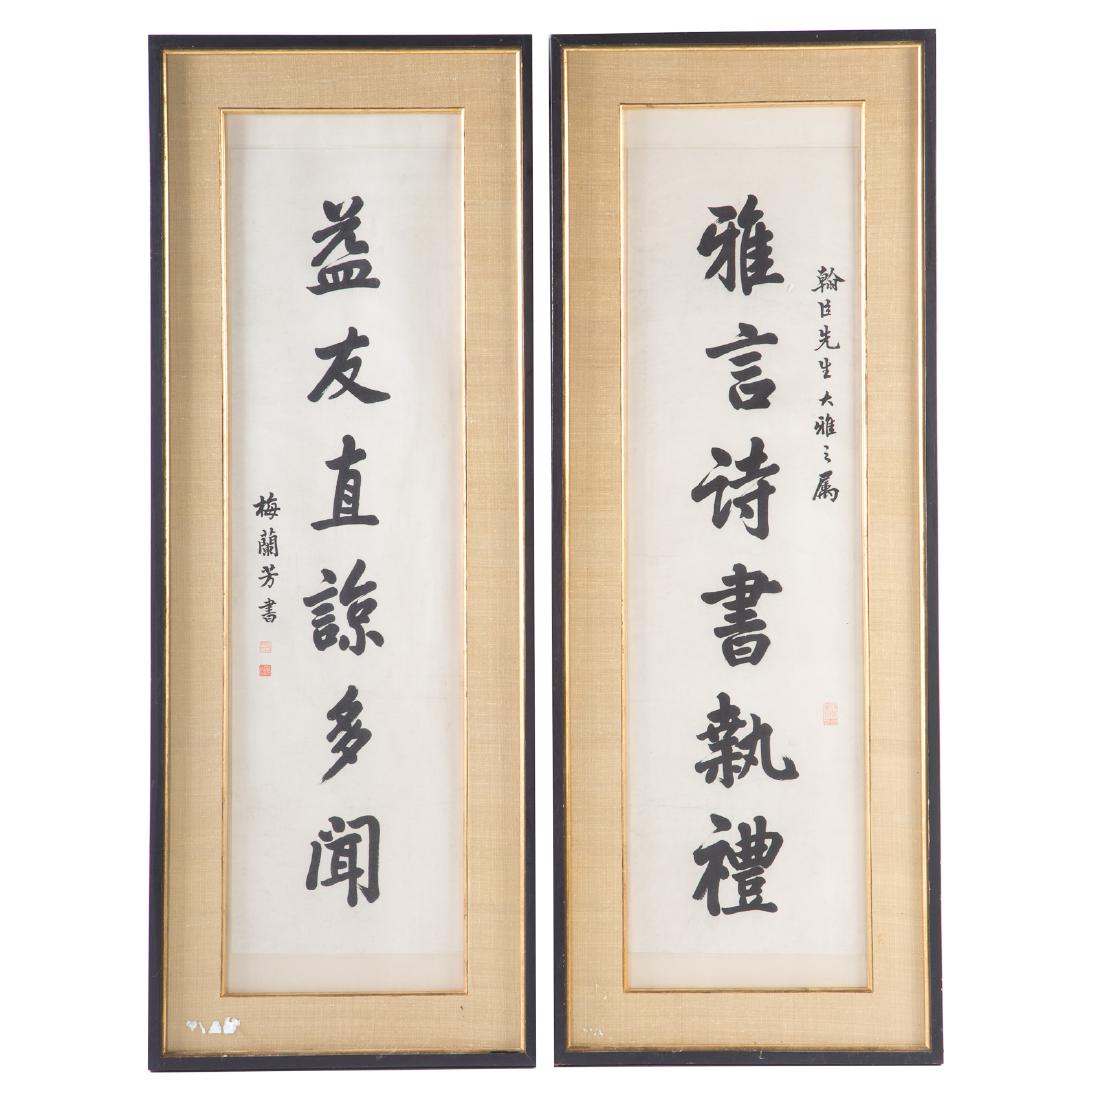 翰臣先生大雅之属
雅言诗書執禮
益友直諒多闻
梅蘭芳書